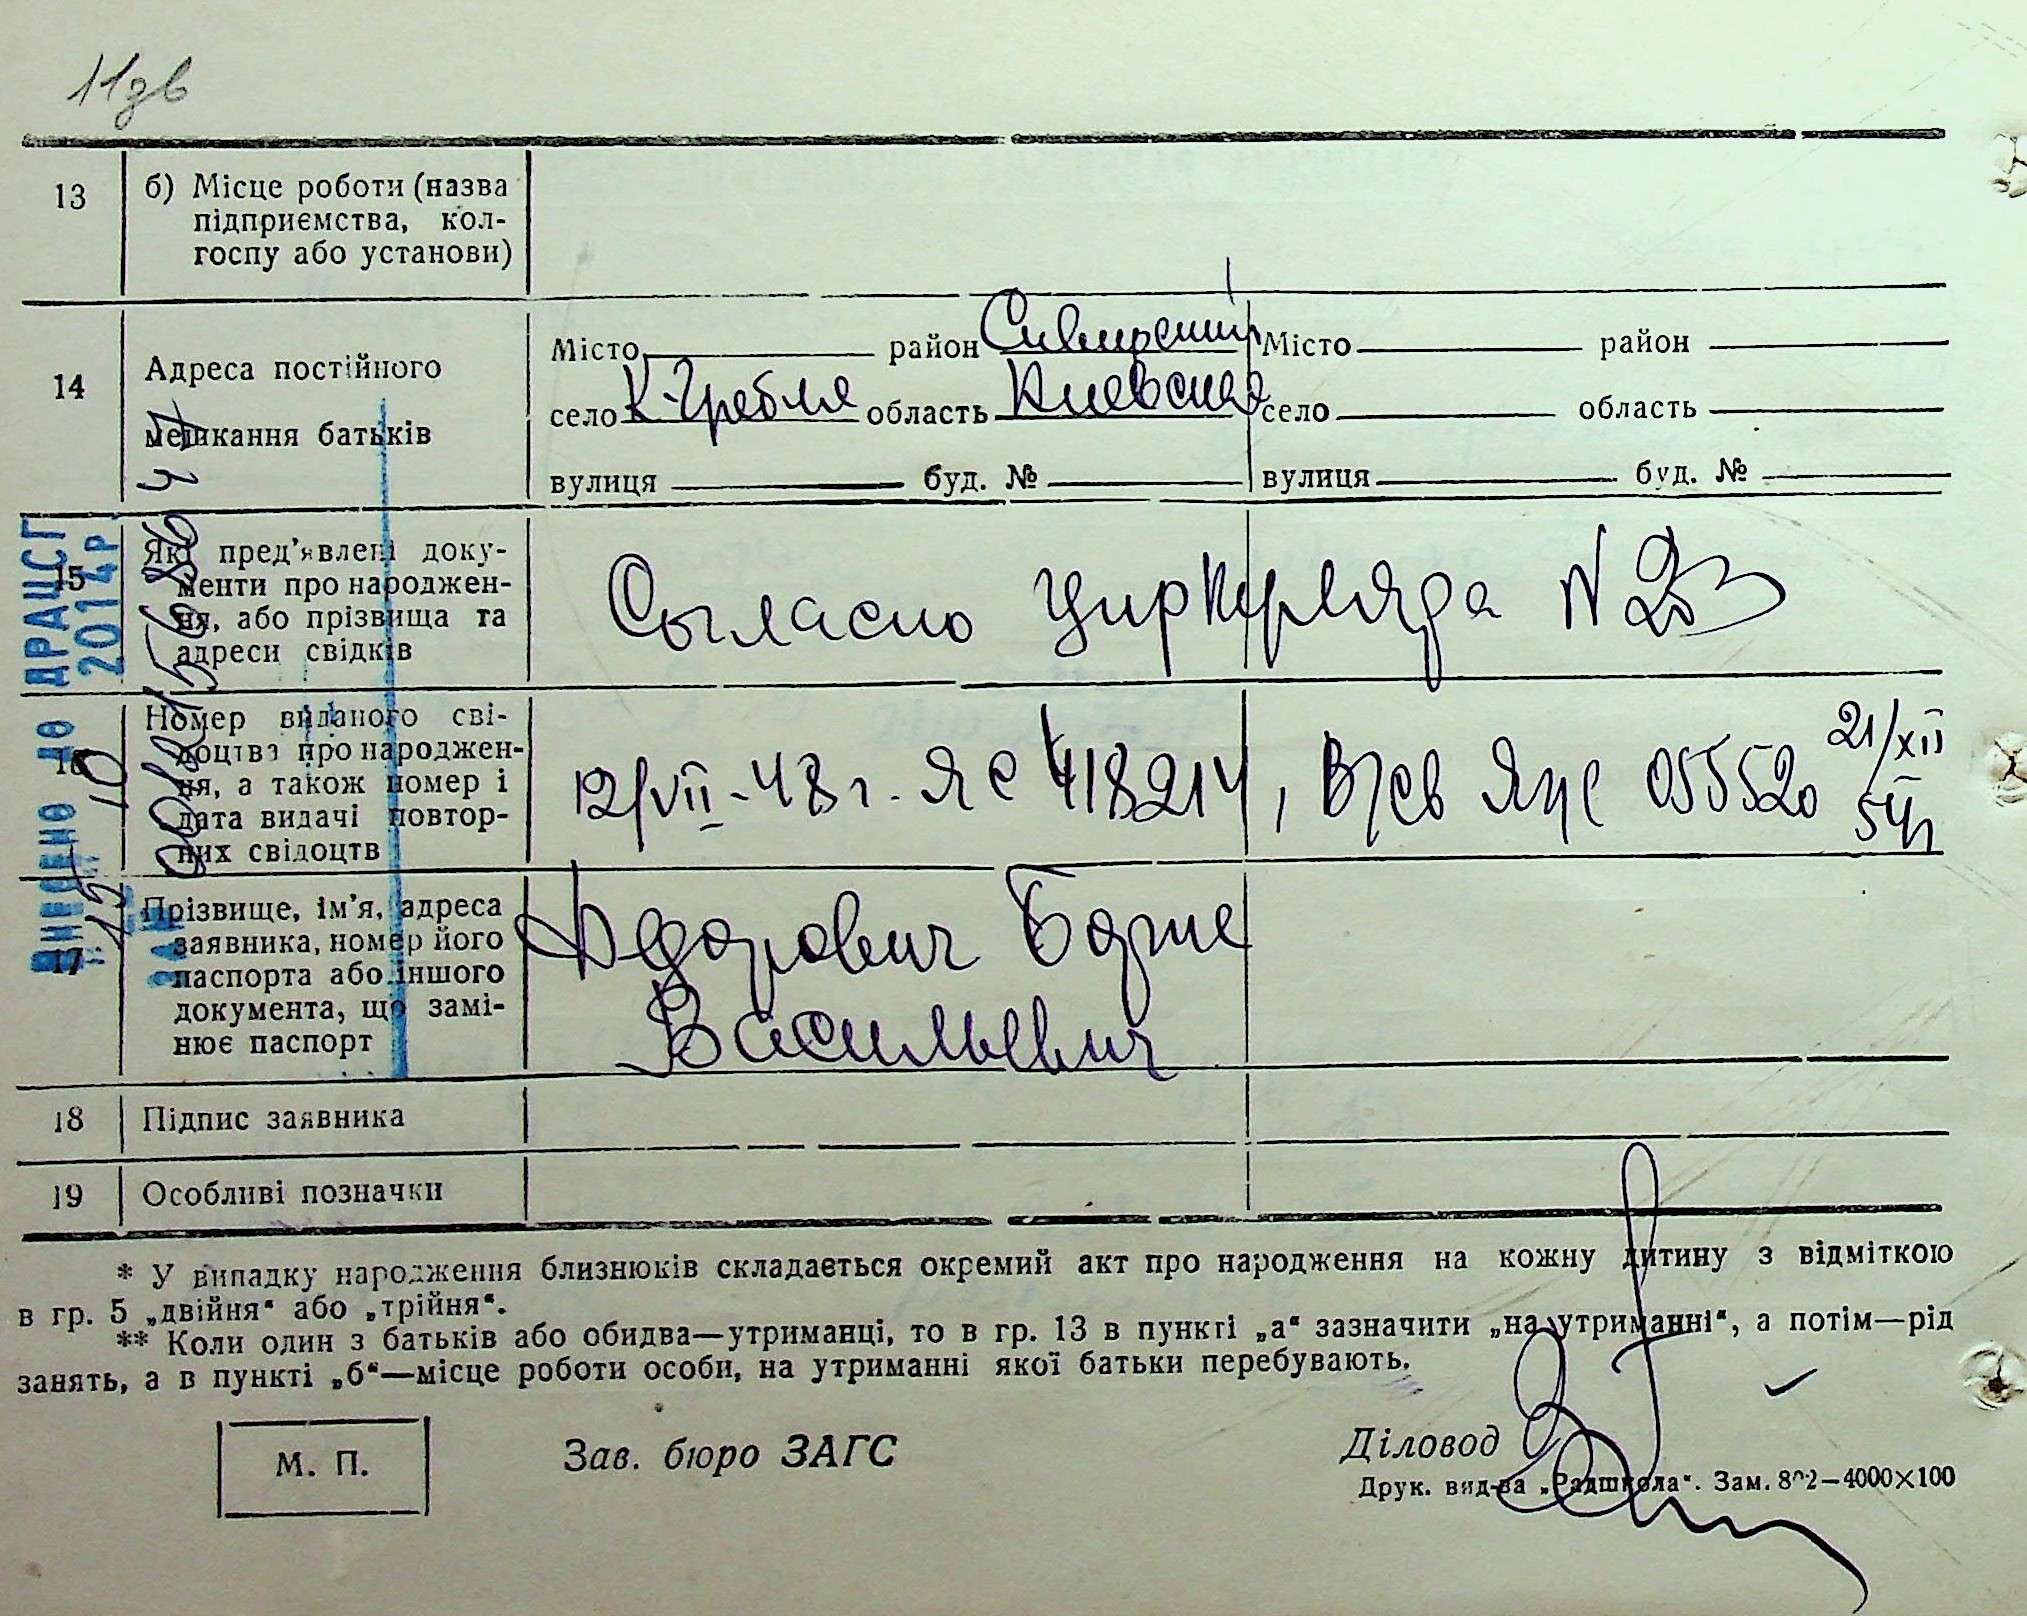 11дв
13 б) Місце роботи (назва
підприємства, кол-
госпу або установи)
14 Адреса постійного
мешкання батьків
Місто район Місто район
село К-Гребля область Киевская село область
вулиця буд. № вулиця буд. №
15 Які пред'явлені доку-
менти про народжен-
ня, або прізвища та
адреси свідків
Сыгласно Циркуляра N 23
16 Номер виданого сві-
доцтва про народжен-
ня, а також номер і
дата видачі повтор-
них свідоцтв
12/VII-48 г. ЯС 418214, 055520 21/XII
54г
17 Прізвище, ім'я, адреса
заявника, номер його
паспорта або іншого
документа, що замі-
нює паспорт
Федорович
Васильевич
18 Підпис заявника
19 Особливі позначки
ВНЕСЕНО ДО ДРАЦСГ
2014р
* У випадку народження близнюків складається окремий акт про народження на кожну дитину з відміткою
в гр. 5 „двійня“ або „трійня“.
** Коли один з батьків або обидва—утриманці, то в гр. 13 в пункті „а“ зазначити „на утриманні“, а потім—рід
занять, а в пункті „б“—місце роботи особи, на утриманні якої батьки перебувають.
М. П. Зав. бюро ЗАГС Діловод
Друк. вид-ва „Радшкола“. Зам. 802—4000×100